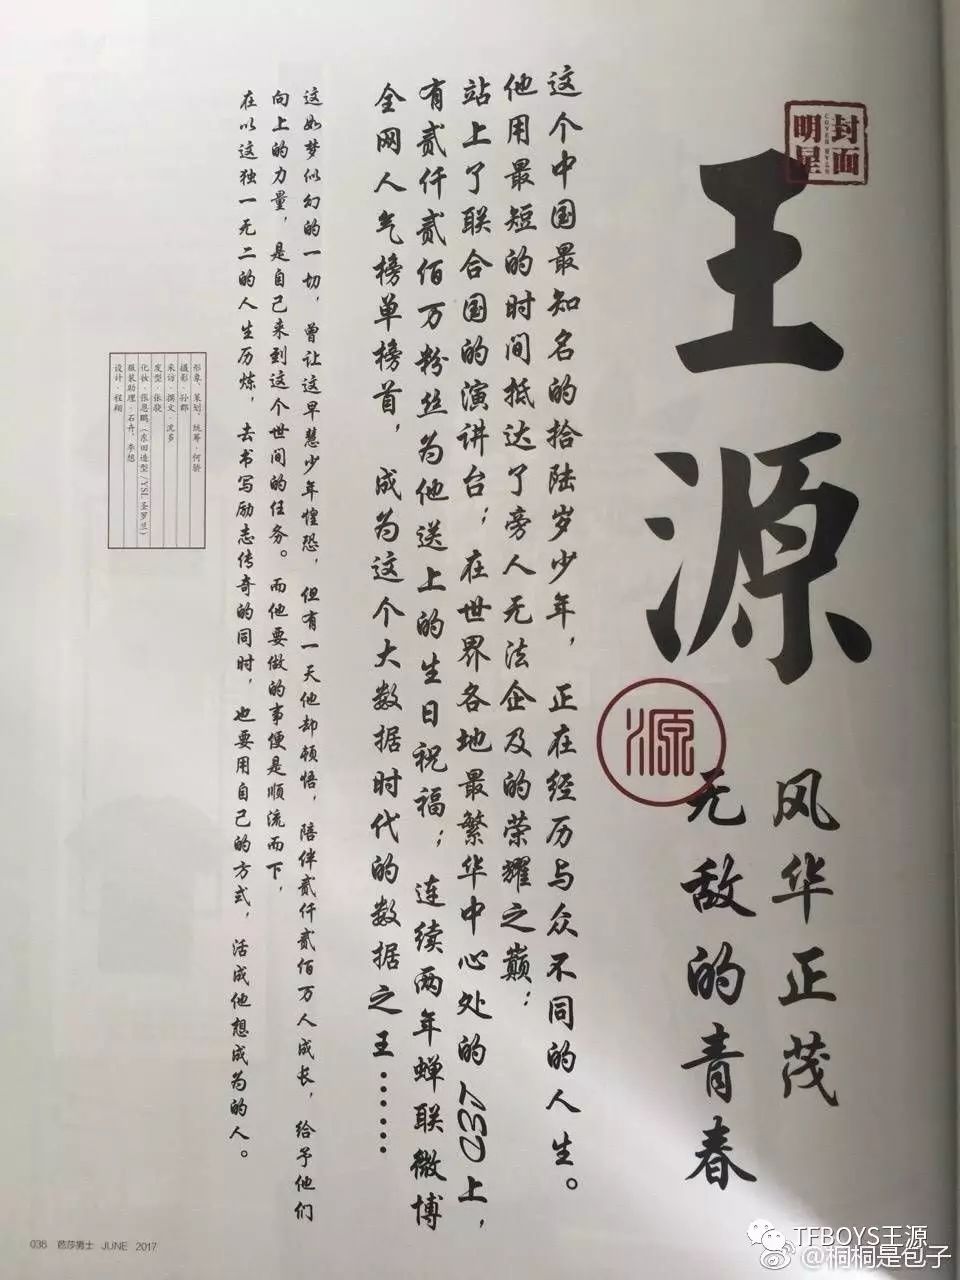 封面
明星
COVER STAR
王源
源
风华正茂
无敌的青春
这个中国最知名的拾陆岁少年，正在经历与众不同的人生。
他用最短的时间抵达了旁人无法企及的荣耀之巅：
站上了联合国的演讲台；在世界各地最繁华中心处的LED上，
有贰仟贰佰万粉丝为他送上的生日祝福；连续两年蝉联微博
全网人气榜单榜首，成为这个大数据时代的数据之王……
这如梦似幻的一切，曾让这早慧少年惶恐，但有一天他却顿悟，陪伴贰仟贰佰万人成长，给予他们
向上的力量，是自己来到这个世间的任务。而他要做的事便是顺流而下，
在以这独一无二的人生历炼，去书写励志传奇的同时，也要用自己的方式，活成他想成为的人。
形象、策划、统筹·何骄
摄影·孙郡
采访、撰文·沈多
发型·张骏
化妆·张恩鹏（东田造型/YSL圣罗兰）
服装助理·石卉、李想
设计·程翔
036 芭莎男士 JUNE 2017
TFBOYS王源
@桐桐是包子